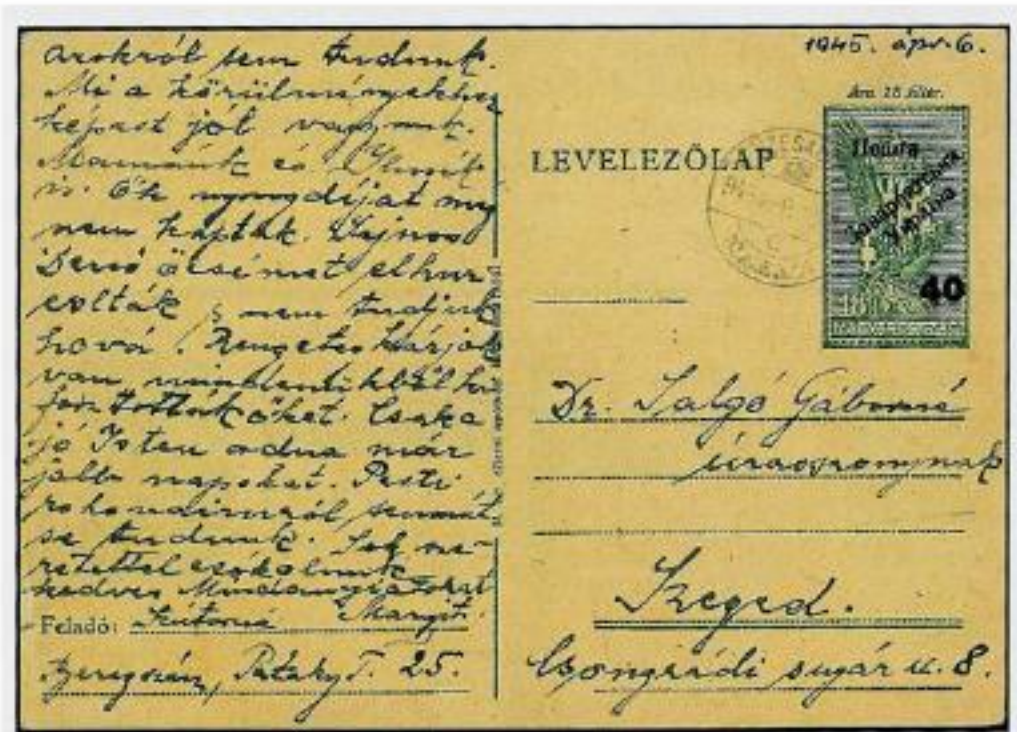 azokról sem tudunk.
Mi a körülményekhez
képest jól vagyunk.
Mamáék és
is. Ők nyugdíjat még
nem kaptak. Sajnos
Dezső öcsémet elhur
colták s nem tudjuk
hová. Rengeteg kárjok
van, mindenükből ki
fosztották őket. Csak a
jó Isten adna már
jobb napokat. Pesti
rokonainkról semmit
se tudunk. Sok sze-
retettel csókolunk
kedves Mindannyiatokat
Feladó: Margit
Beregszász, Pataky T. 25.
1945. ápr. 6.
Ára 18 fillér.
LEVELEZŐLAP
Пошта
Закарпатська
Україна
40
Dr. Salgó Gáborné
úrasszonynak
Szeged.
Csongrádi sugár u. 8.